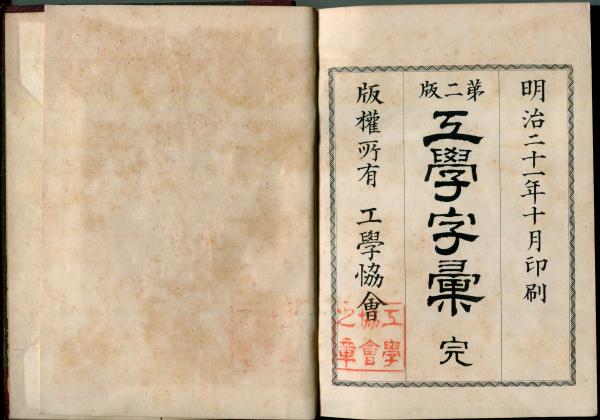 明治二十一年十月印刷
第二版
工學字彙 完
版權所有 工學協會
工學
協會
之章